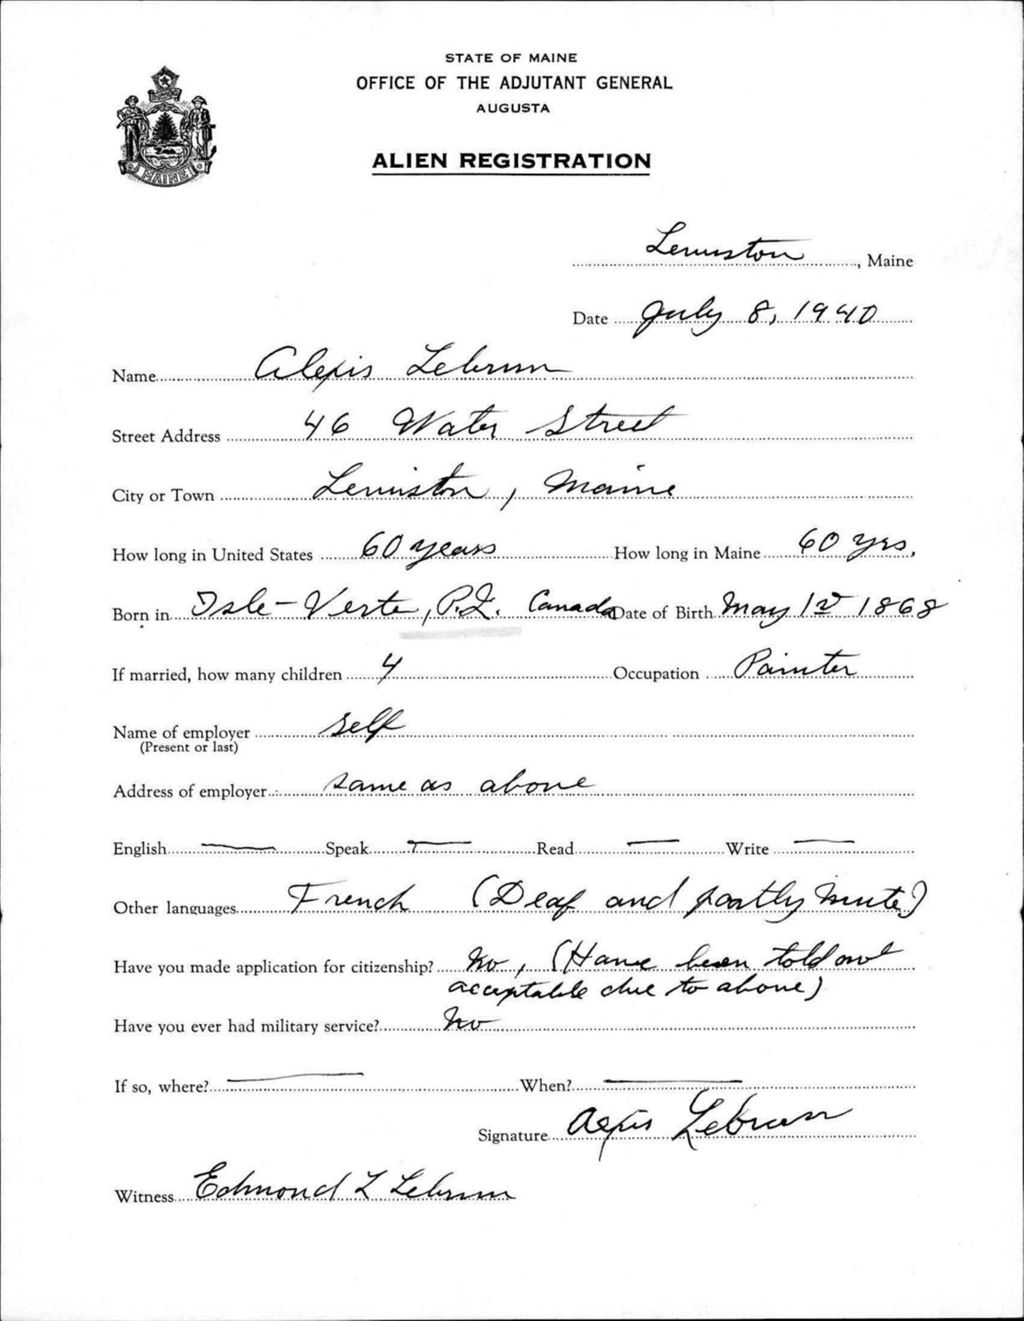 STATE OF MAINE
OFFICE OF THE ADJUTANT GENERAL
AUGUSTA
ALIEN REGISTRATION
MAINE
Lewiston, Maine
Date July 8, 1940
Name Alexis Lebrun
Street Address 46 Water Street
City or Town Lewiston, Maine
How long in United States 60 years How long in Maine 60 yrs.
Born in Isle-Verte, P.Q. Canada Date of Birth May 1st 1868
If married, how many children 4 Occupation Painter
Name of employer self
(Present or last)
Address of employer same as above
English — Speak — Read — Write —
Other languages French (Deaf and partly mute)
Have you made application for citizenship? No, (Have been told not
acceptable due to above)
Have you ever had military service? No
If so, where? — When? —
Signature Alexis Lebrun
Witness Edmond L Lebrun